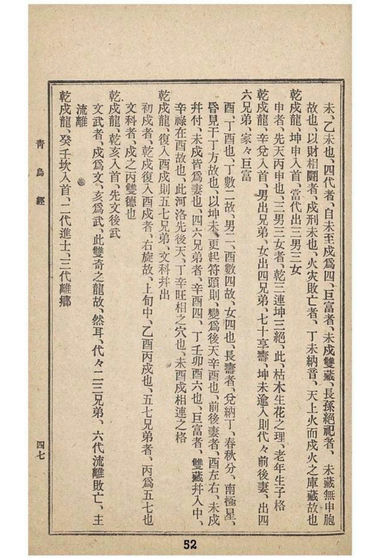 未、乙未也、四代者、自未至戌爲四、巨富者、未戌雙藏、長孫絕祀者、未藏無申胞
故也、以財相鬪者、戌刑未也、火灾敗亡者、丁未納音、天上火而戌火之庫藏故也
乾戌龍、坤申入首、當代出三男三女
申者、先天丙申也、三男三女者、乾三連坤三絕、此、枯木生花之理、老年生子格
乾戌龍、辛兌入首、男出兄弟、女出四兄弟、七十享壽、坤未逾入則代々前後妻、出四
六兄弟、家々巨富
酉、丁酉也、丁數二故、男二、酉數四故、女四也、長壽者、兌納丁、春秋分、南極星、
昏見于丁方故也、以坤未、更起符頭則、變爲後天辛酉也、前後妻者、酉左右、未戌
幷付、未戌皆爲妻也、四六兄弟者、辛酉四、丁壬卯酉六也、巨富者、雙藏幷入中、
辛祿在酉故也、此河洛先後天、丁辛旺相之穴也、未酉戌相連之格
乾戌龍、復入酉戌則五七兄弟、文科幷出
初戌者、乾戌復入酉戌者、右旋故、上旬中、乙酉丙戌也、五七兄弟者、丙爲五七也
文科者、戌之丙雙德也
乾戌龍、乾亥入首、先文後武
文武者、戌爲文、亥爲武、此雙奇之龍故、然耳、代々二三兄弟、六代流離敗亡、主
流離
乾戌龍、癸壬坎入首、二代進士、三代離鄕
靑烏經
四七
52